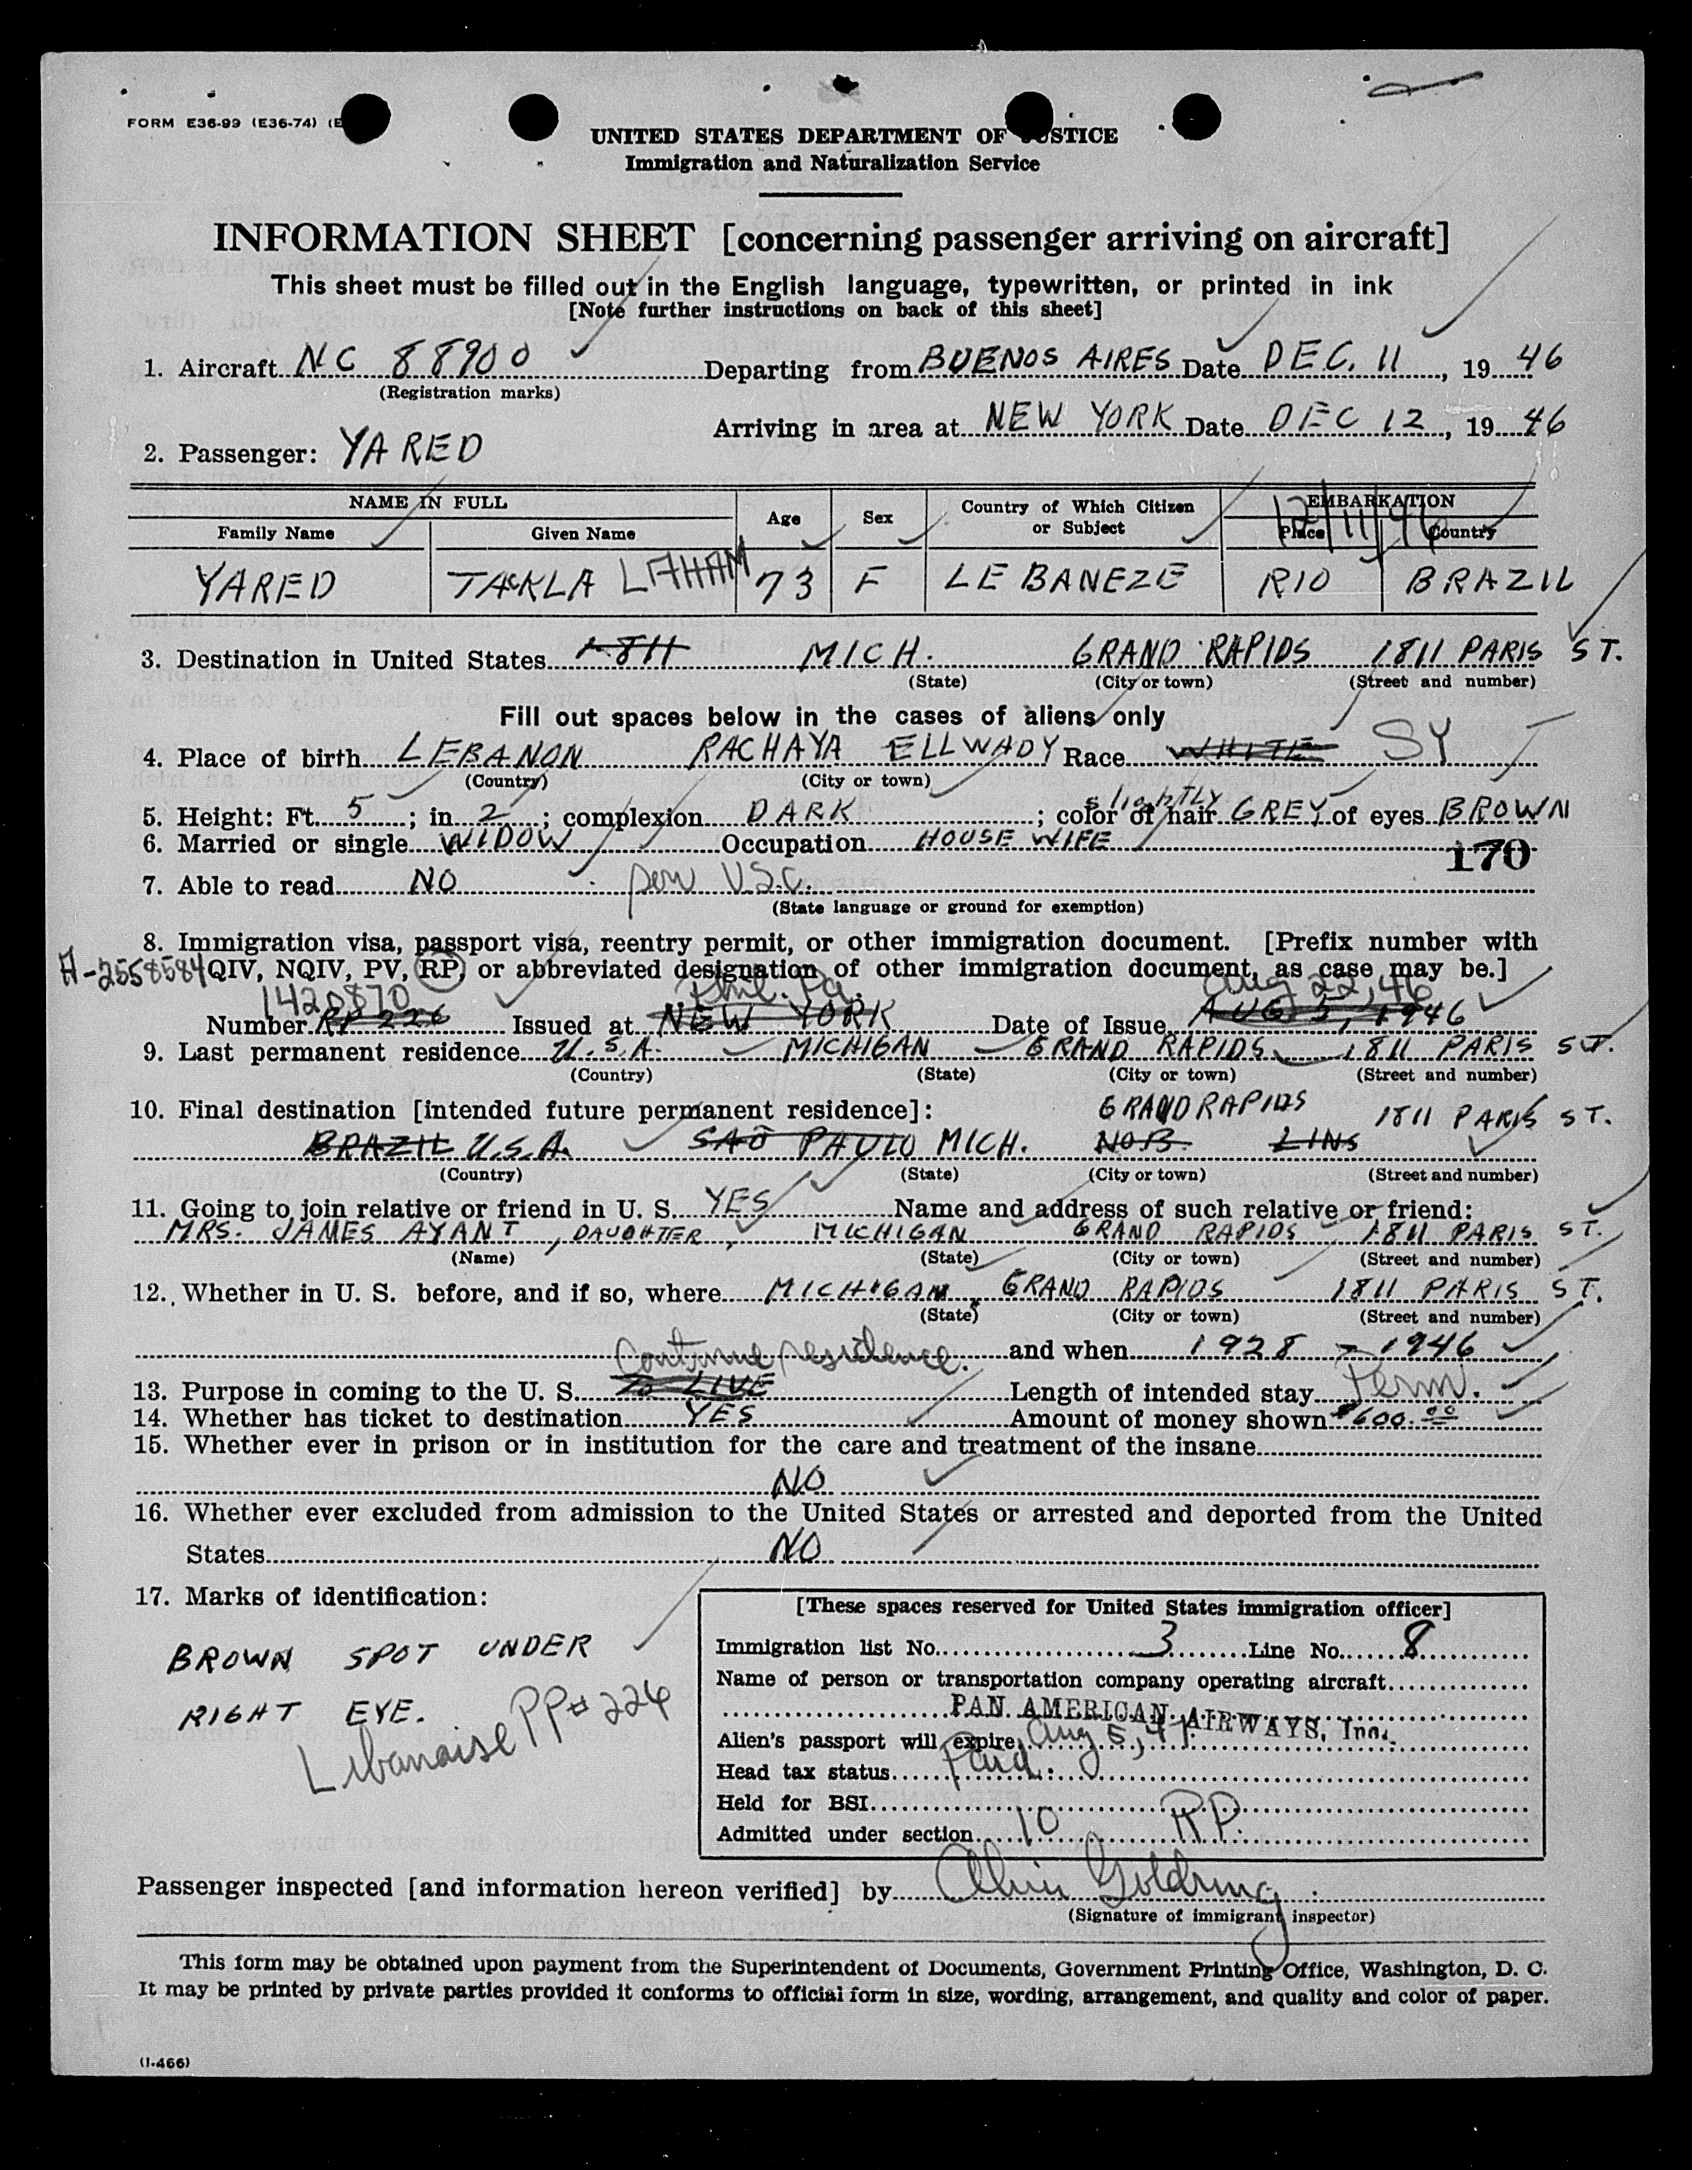 FORM E36-99 (E36-74) (E
UNITED STATES DEPARTMENT OF JUSTICE
Immigration and Naturalization Service
INFORMATION SHEET [concerning passenger arriving on aircraft]
This sheet must be filled out in the English language, typewritten, or printed in ink
[Note further instructions on back of this sheet]
1. Aircraft NC 88900 Departing from BUENOS AIRES Date DEC. 11, 1946
(Registration marks)
Arriving in area at NEW YORK Date DEC 12, 1946
2. Passenger: YARED
NAME IN FULL Age Sex Country of Which Citizen or Subject EMBARKATION
12/11/46
Family Name Given Name Place Country
YARED TAKLA LAHAM 73 F LEBANEZE RIO BRAZIL
3. Destination in United States 1811 MICH. GRAND RAPIDS 1811 PARIS ST.
(State) (City or town) (Street and number)
Fill out spaces below in the cases of aliens only
4. Place of birth LEBANON RACHAYA ELLWADY Race WHITE SY
(Country) (City or town)
5. Height: Ft. 5; in 2; complexion DARK; color of hair slightly GREY of eyes BROWN
6. Married or single WIDOW Occupation HOUSE WIFE
170
7. Able to read NO USC.
(State language or ground for exemption)
8. Immigration visa, passport visa, reentry permit, or other immigration document. [Prefix number with
A-2558584 QIV, NQIV, PV, RP, or abbreviated designation of other immigration document, as case may be.]
1420870 Phil. Pa. Aug 22, 46
Number RP 226 Issued at NEW YORK Date of Issue AUG 5, 1946
9. Last permanent residence U.S.A. MICHIGAN GRAND RAPIDS 1811 PARIS ST.
(Country) (State) (City or town) (Street and number)
10. Final destination [intended future permanent residece]: GRAND RAPIDS 1811 PARIS ST.
BRAZIL U.S.A. SAO PAULO MICH. NOB. LINS
(Country) (State) (City or town) (Street and number)
11. Going to join relative or friend in U. S. YES Name and address of such relative or friend:
MRS. JAMES AYANT, DAUGHTER, MICHIGAN GRAND RAPIDS 1811 PARIS ST.
(Name) (State) (City or town) (Street and number)
12. Whether in U. S. before, and if so, where MICHIGAN, GRAND RAPIDS 1811 PARIS ST.
(State) (City or town) (Street and number)
and when 1928 - 1946
Continue residence.
13. Purpose in coming to the U. S. TO LIVE Length of intended stay Perm.
14. Whether has ticket to destination YES Amount of money shown $600.00
15. Whether ever in prison or in institution for the care and treatment of the insane
NO
16. Whether ever excluded from admission to the United States or arrested and deported from the United
States NO
17. Marks of identification:
BROWN SPOT UNDER
RIGHT EYE.
Libanaise PP# 226
[These spaces reserved for United States immigration officer]
Immigration list No. 3 Line No. 8
Name of person or transportation company operating aircraft
PAN AMERICAN AIRWAYS, Inc.
Alien's passport will expire Aug 5, 47.
Head tax status Paid.
Held for BSI
Admitted under section 10 RP.
Passenger inspected [and information hereon verified] by Alvin Goldring
(Signature of immigrant inspector)
This form may be obtained upon payment from the Superintendent of Documents, Government Printing Office, Washington, D. C.
It may be printed by private parties provided it conforms to official form in size, wording, arrangement, and quality and color of paper.
(I-466)